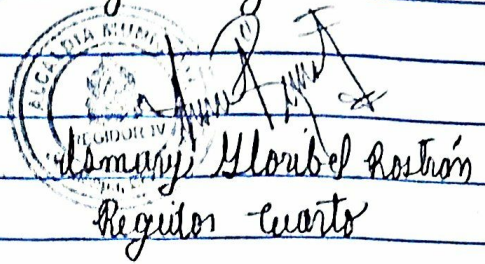 ALCALDIA MUNI
REGIDOR IV
Ismary Gloribel Rostrán
Regidor Cuarto